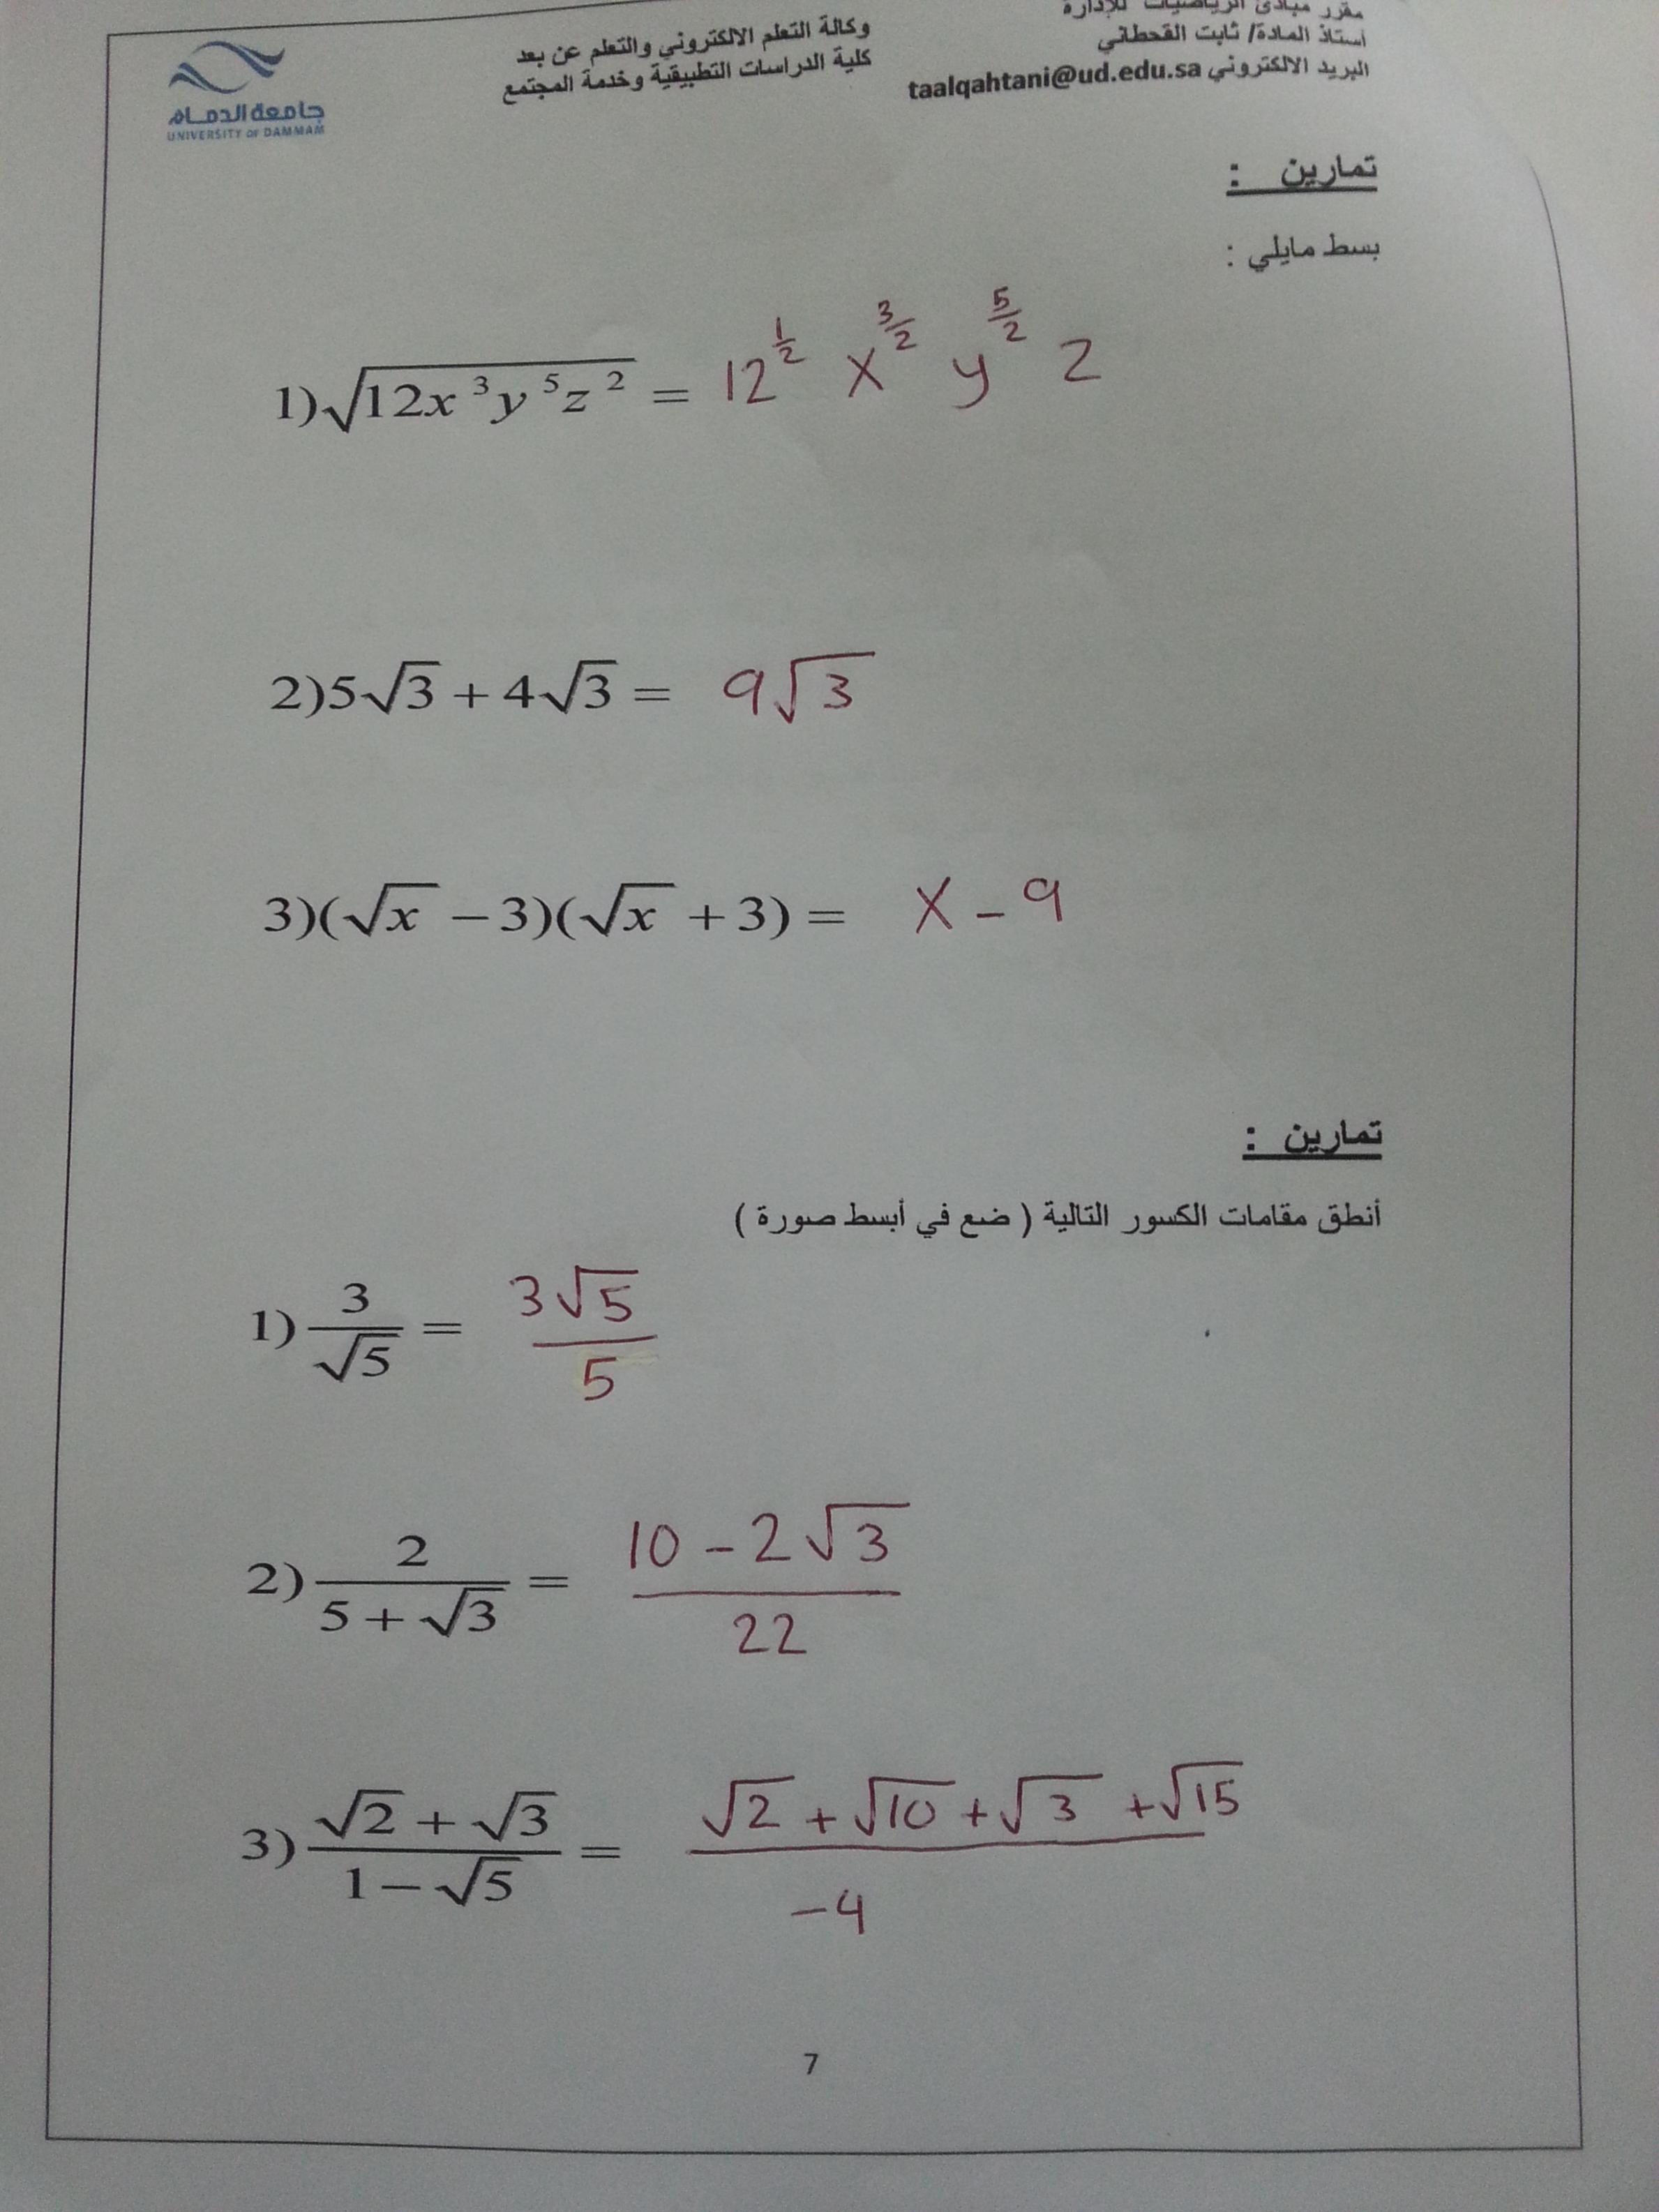 مقرر مبادئ الرياضيات للإدارة
أستاذ المادة/ ثابت القحطاني
البريد الالكتروني taalqahtani@ud.edu.sa
وكالة التعلم الالكتروني والتعلم عن بعد
كلية الدراسات التطبيقية وخدمة المجتمع
جامعة الدمام
UNIVERSITY OF DAMMAM
تمارين :
بسط مايلي :
1)√(12x³y⁵z²) = 12^(1/2) x^(3/2) y^(5/2) z
2)5√3 + 4√3 = 9√3
3)(√x − 3)(√x + 3) = x − 9
تمارين :
أنطق مقامات الكسور التالية ( ضع في أبسط صورة )
1) 3/√5 = 3√5/5
2) 2/(5 + √3) = (10 − 2√3)/22
3) (√2 + √3)/(1 − √5) = (√2 + √10 + √3 + √15)/−4
7